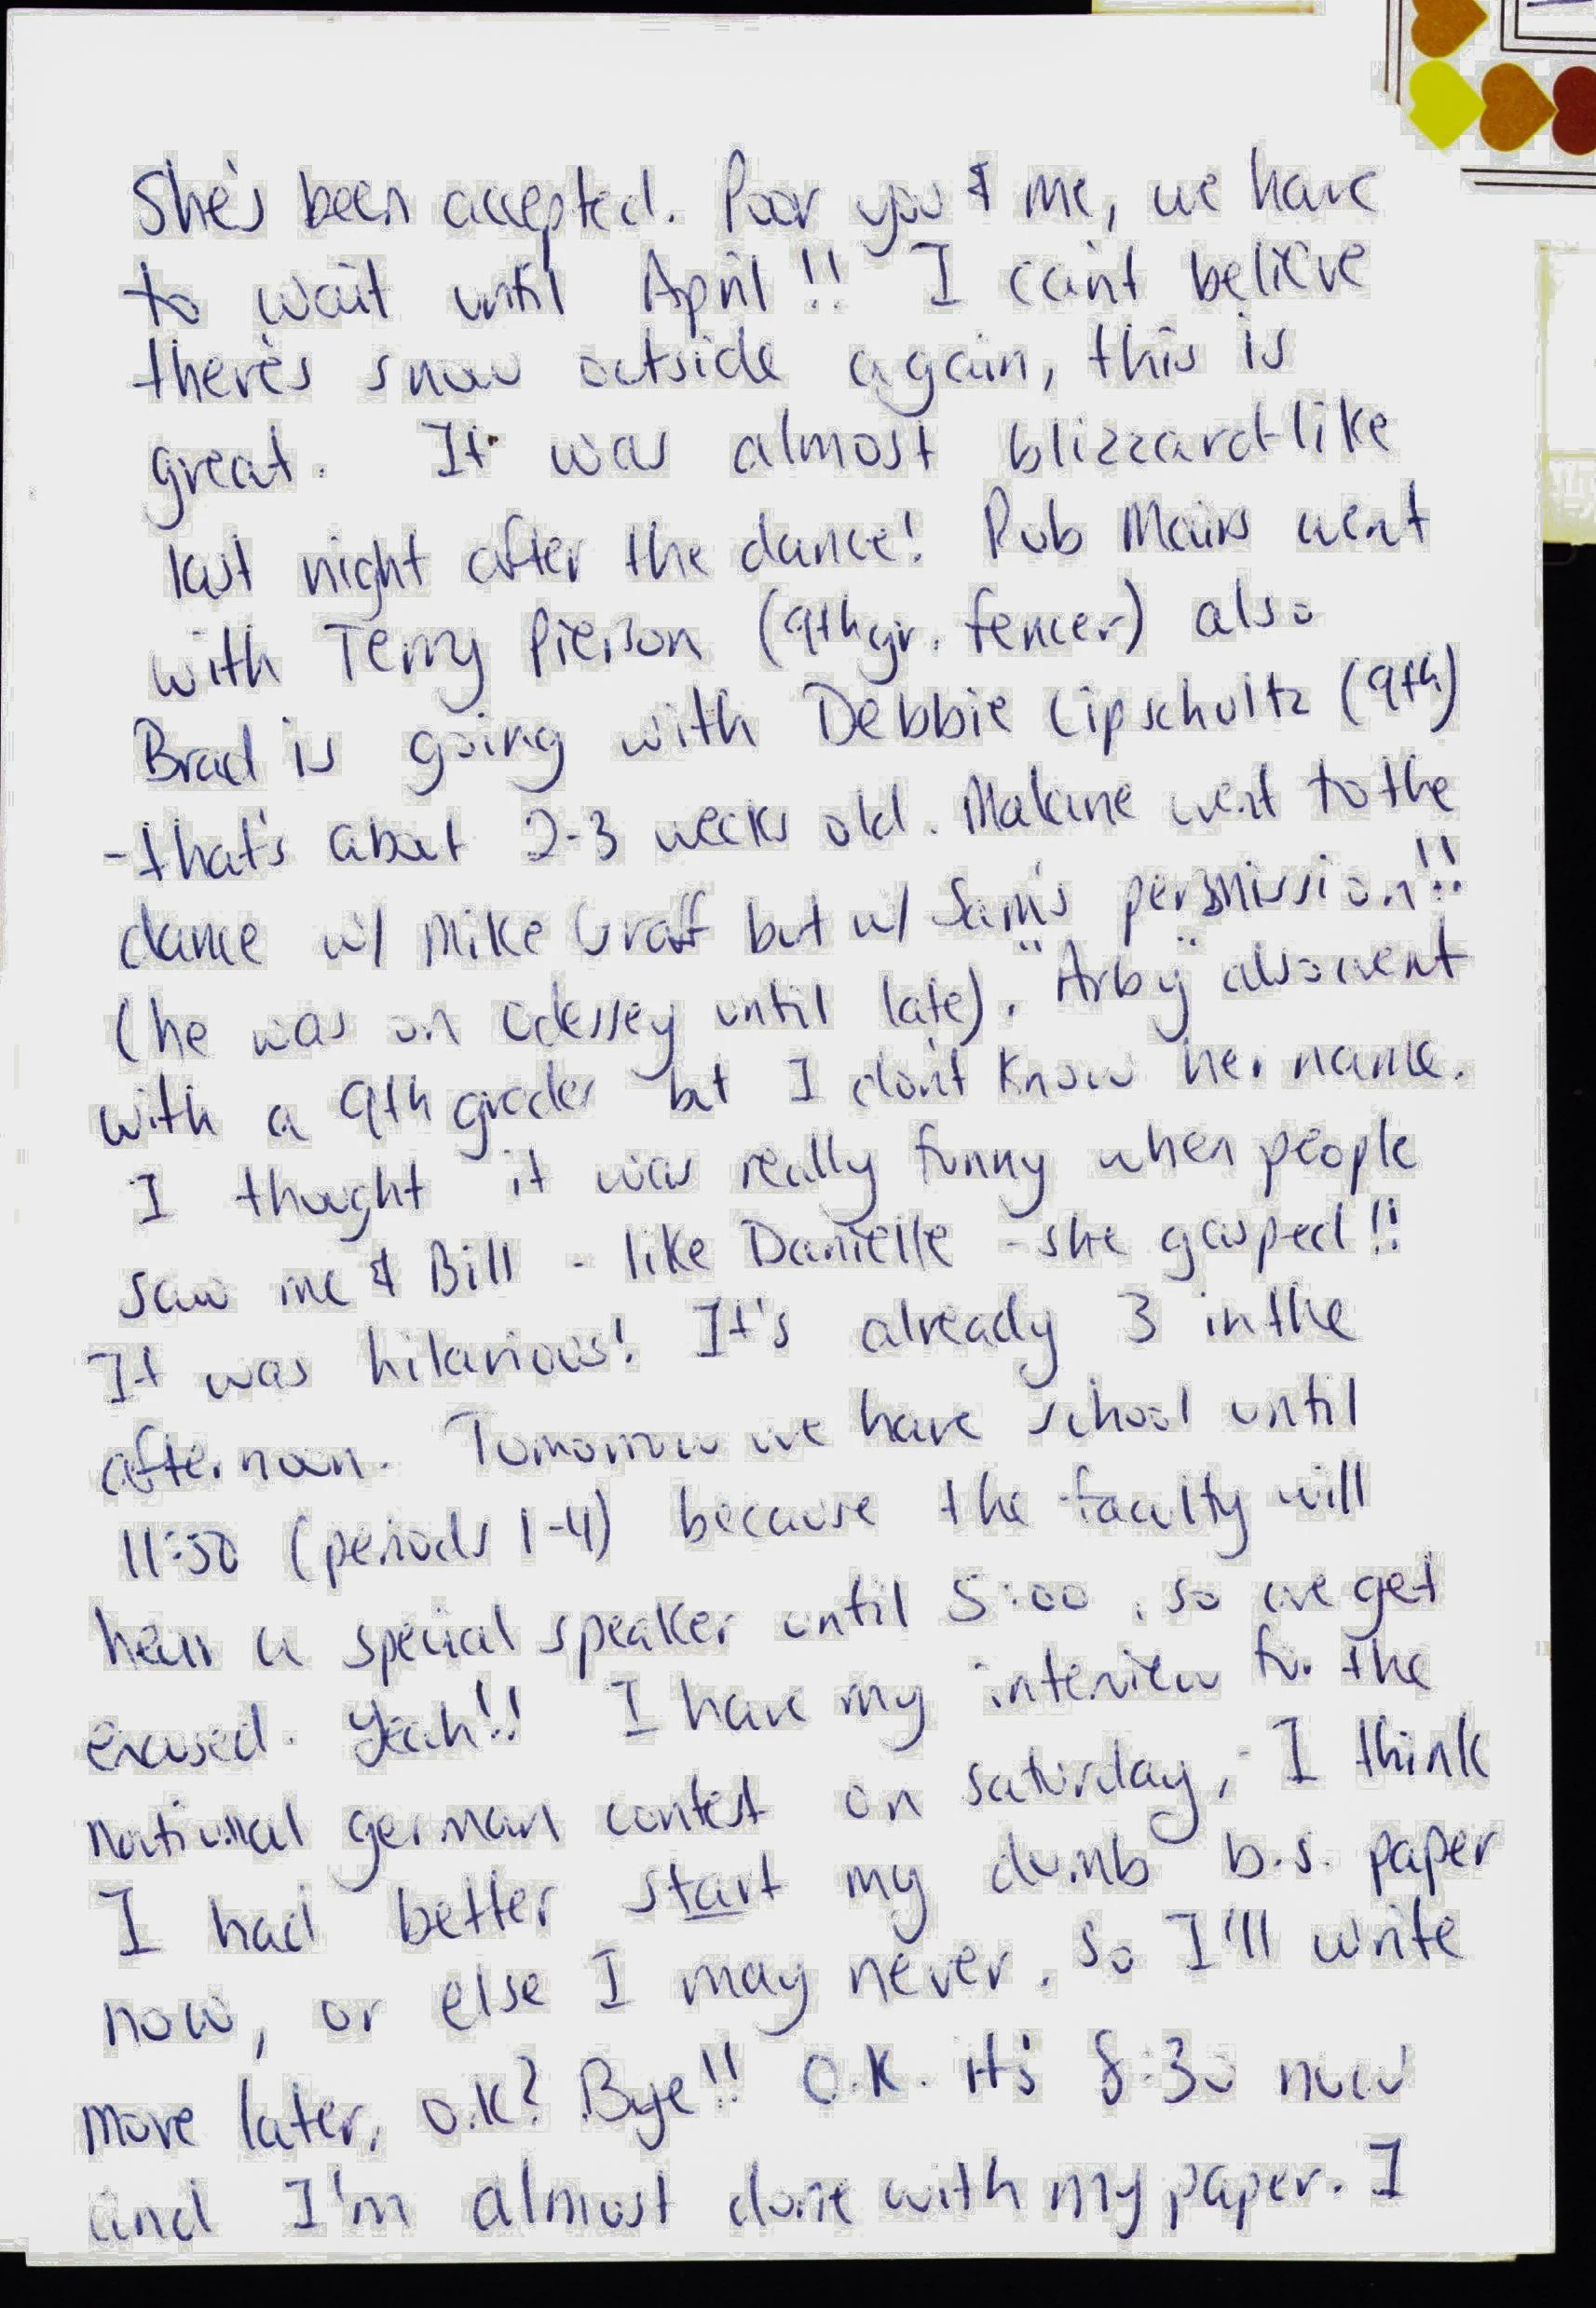 She's been accepted. Poor you & me, we have
to wait until April!! I can't believe
there's snow outside again, this is
great. It was almost blizzard-like
last night after the dance! Rob Mains went
with Terry Pierson (9th gr. fencer) also
Brad is going with Debbie Lipschultz (9th)
-that's about 2-3 weeks old. Malaine went to the
dance w/ Mike Graff but w/ Sam's permission!!
(he was on Odessey until late). "Arby" also went
with a 9th grader but I don't know her name.
I thought it was really funny when people
saw me & Bill - like Danielle - she gasped!!
It was hilarious! It's already 3 in the
afternoon. Tomorrow we have school until
11:30 (periods 1-4) because the faculty will
hear a special speaker until 5:00, so we get
excused. Yeah!! I have my interview for the
national german contest on Saturday, I think
I had better start my dumb b.s. paper
now, or else I may never. So I'll write
more later, o.k? Bye!! O.K. it's 8:30 now
and I'm almost done with my paper. I